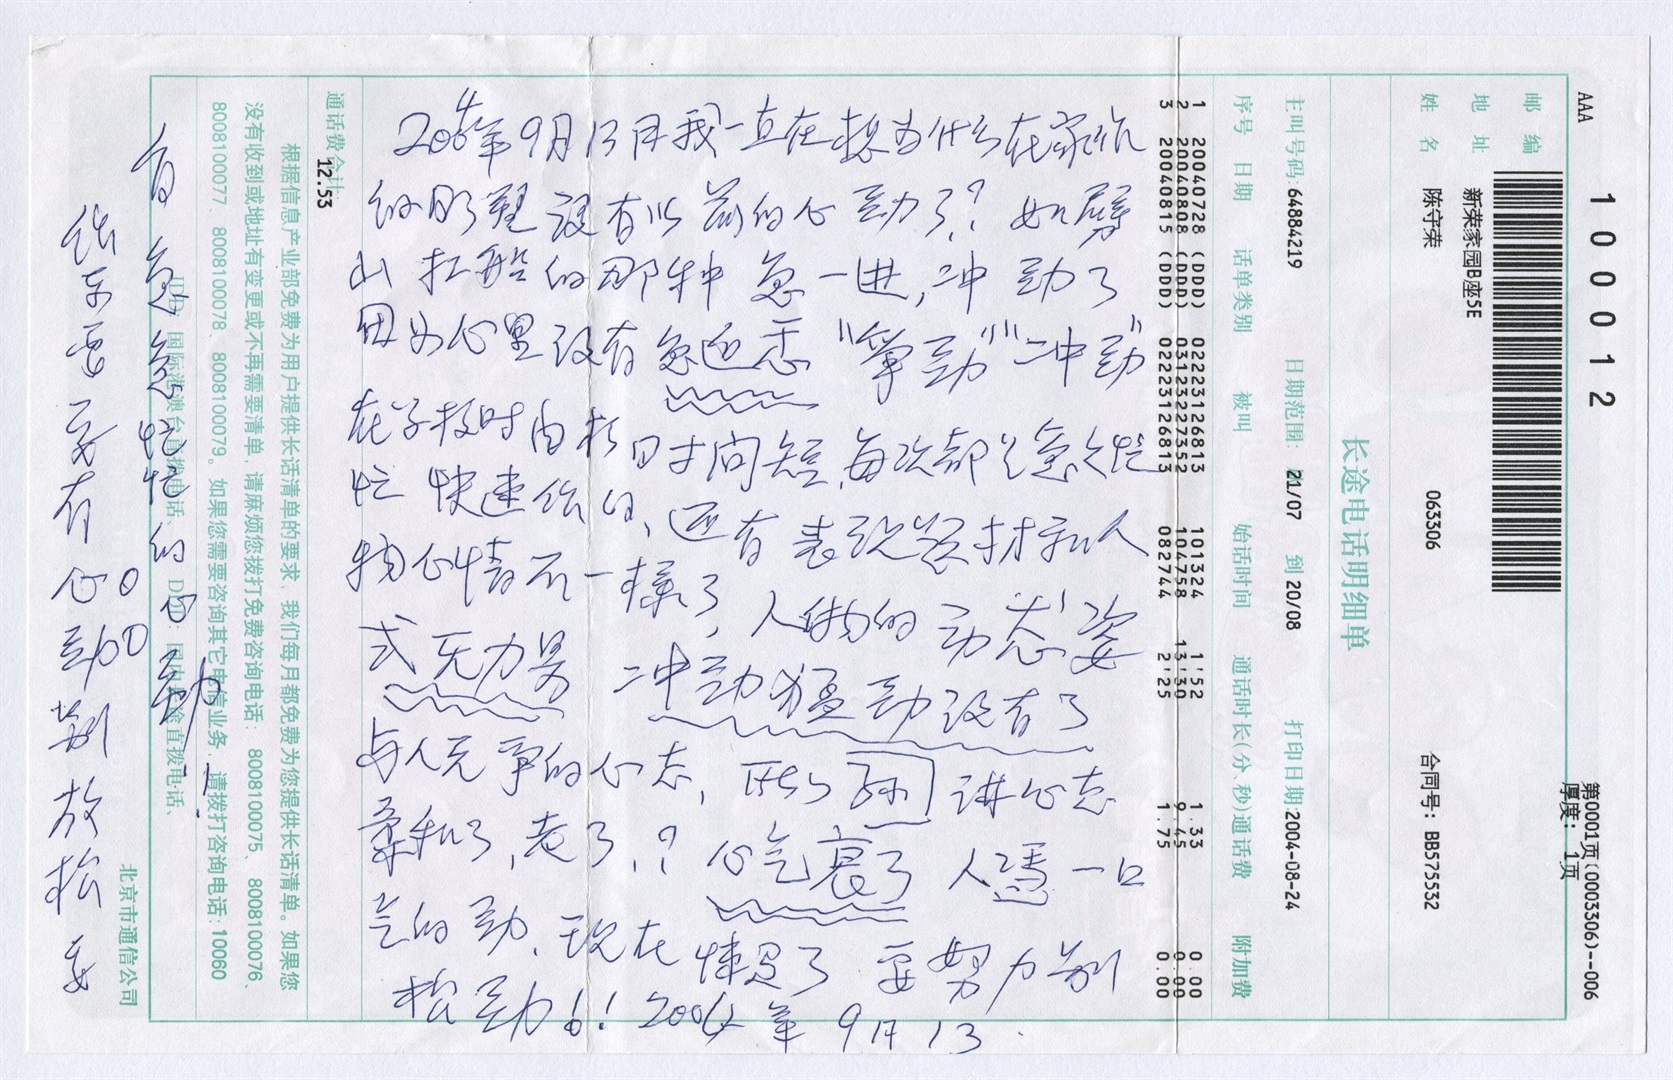 2004年9月13日我一直在想为什么在家作
的雕塑没有以前的心劲了？如劈
山 扛船的那种急一进，冲劲了
因为心里没有急迫态“争劲”“冲劲”
在学校时由于时间短，每次都是急急忙
忙快速作的，还有表现题材和人
物心情不一样了，人物的动态姿
式无力量 冲劲猛劲没有了
与人竞争的心态，所以 讲心态
柔和了，老了，？心气衰了 人凭一口
气的劲，现在情足了 要努力别
松劲6！2004年9月13.
作品要有心劲别放松要
有急急忙忙的心劲
AAA
100012
邮编
地址 新荣家园B座5E
姓名 陈守荣 063306 合同号：BB575532
第0001页(0003306)--006
厚度：1页
长途电话明细单
主叫号码：64884219 日期范围：21/07 到 20/08 打印日期：2004-08-24
序号 日期 话单类别 被叫 始话时间 通话时长(分、秒) 通话费 附加费
1 20040728 (DDD) 02223126813 101324 1'52 1.33 0.00
2 20040808 (DDD) 03123227352 104758 13'30 9.45 0.00
3 20040815 (DDD) 02223126813 082744 2'25 1.75 0.00
通话费合计：
12.53
根据信息产业部免费为用户提供长话清单的要求，我们每月都免费为您提供长话清单。如果您
没有收到或地址有变更或不再需要清单，请麻烦您拨打免费咨询电话：800810075、800810076、
800810077、800810078、800810079。如果您需要咨询其它电信业务，请拨打咨询电话：10060
国际港澳台直拨电话、DDD：国内长途直拨电话、
北京市通信公司